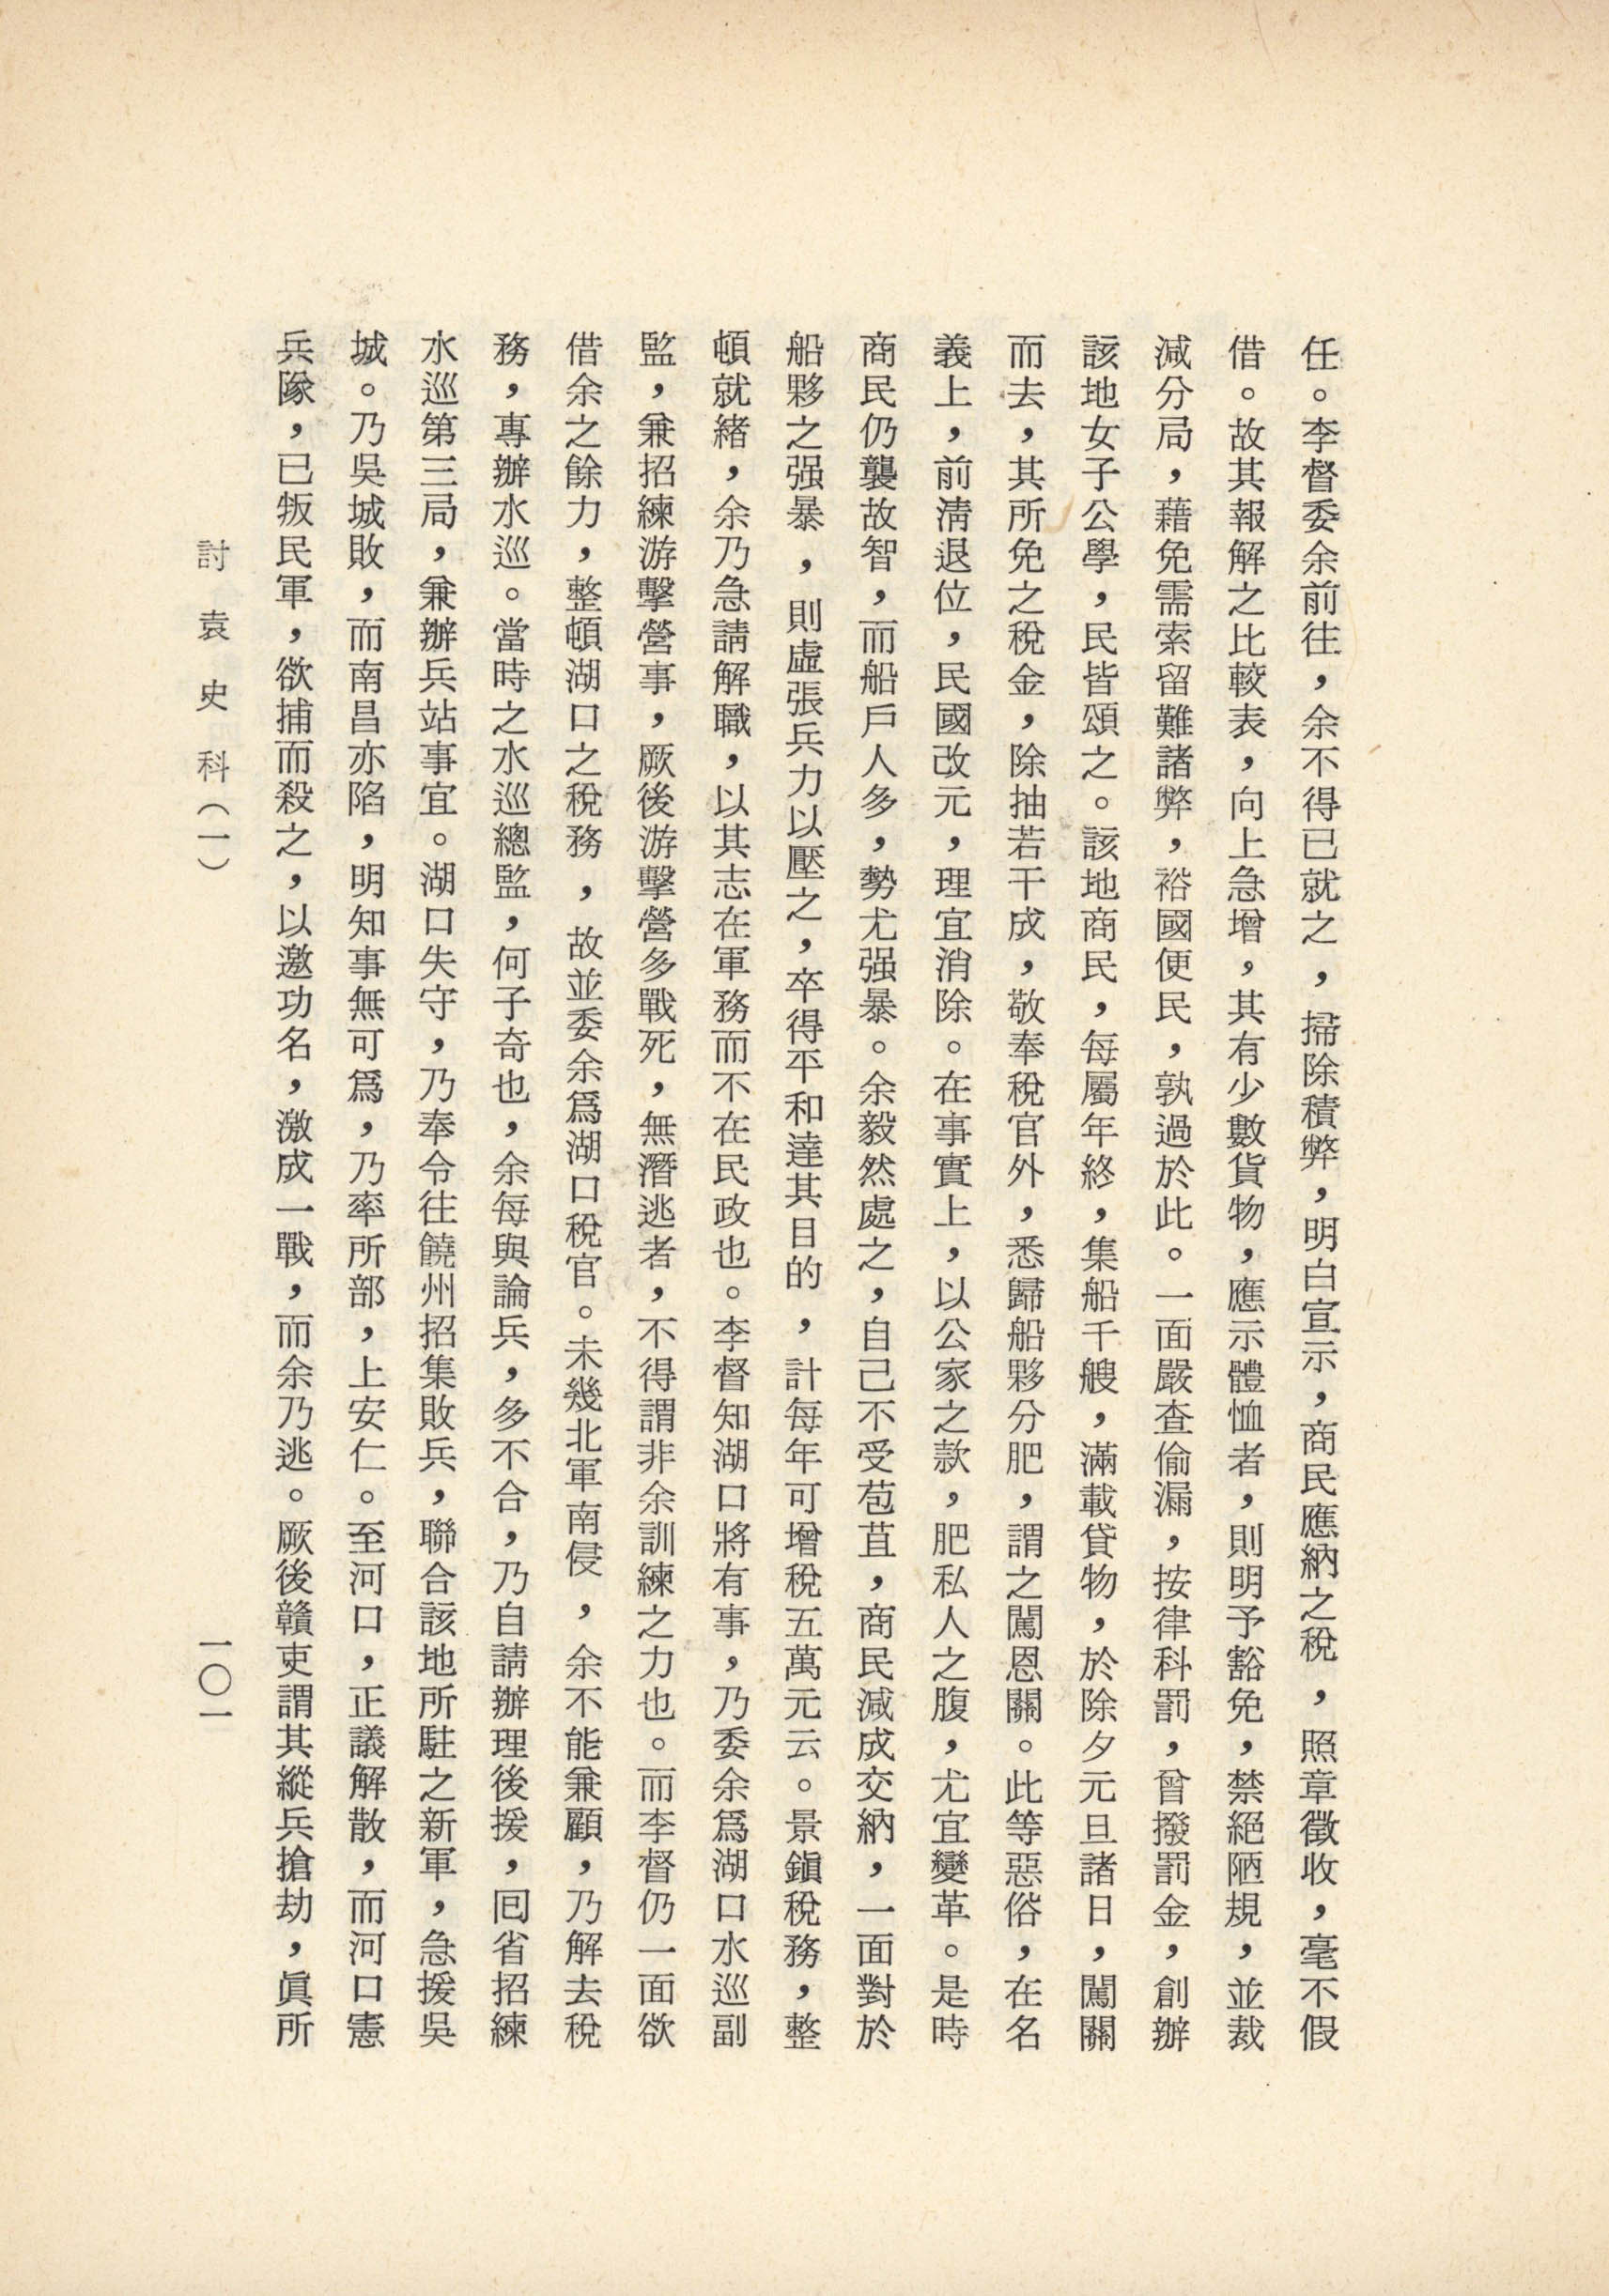 任。李督委余前往，余不得已就之，掃除積弊，明白宣示，商民應納之稅，照章徵收，毫不假
借。故其報解之比較表，向上急增，其有少數貨物，應示體恤者，則明予豁免，禁絕陋規，並裁
減分局，藉免需索留難諸弊，裕國便民，孰過於此。一面嚴查偷漏，按律科罰，曾撥罰金，創辦
該地女子公學，民皆頌之。該地商民，每屬年終，集船千艘，滿載貸物，於除夕元旦諸日，闖關
而去，其所免之稅金，除抽若干成，敬奉稅官外，悉歸船夥分肥，謂之闖恩關。此等惡俗，在名
義上，前淸退位，民國改元，理宜消除。在事實上，以公家之款，肥私人之腹，尤宜變革。是時
商民仍襲故智，而船戶人多，勢尤强暴。余毅然處之，自己不受苞苴，商民減成交納，一面對於
船夥之强暴，則虛張兵力以壓之，卒得平和達其目的，計每年可增稅五萬元云。景鎭稅務，整
頓就緒，余乃急請解職，以其志在軍務而不在民政也。李督知湖口將有事，乃委余爲湖口水巡副
監，兼招練游擊營事，厥後游擊營多戰死，無潛逃者，不得謂非余訓練之力也。而李督仍一面欲
借余之餘力，整頓湖口之稅務，故並委余爲湖口稅官。未幾北軍南侵，余不能兼顧，乃解去稅
務，專辦水巡。當時之水巡總監，何子奇也，余每與論兵，多不合，乃自請辦理後援，囘省招練
水巡第三局，兼辦兵站事宜。湖口失守，乃奉令往饒州招集敗兵，聯合該地所駐之新軍，急援吳
城。乃吳城敗，而南昌亦陷，明知事無可爲，乃率所部，上安仁。至河口，正議解散，而河口憲
兵隊，已叛民軍，欲捕而殺之，以邀功名，激成一戰，而余乃逃。厥後贛吏謂其縱兵搶劫，眞所
討袁史料（一）
一〇一